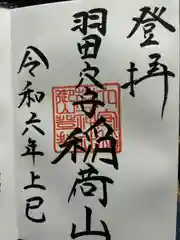 登拝
羽田穴守稲荷山
令和六年上巳